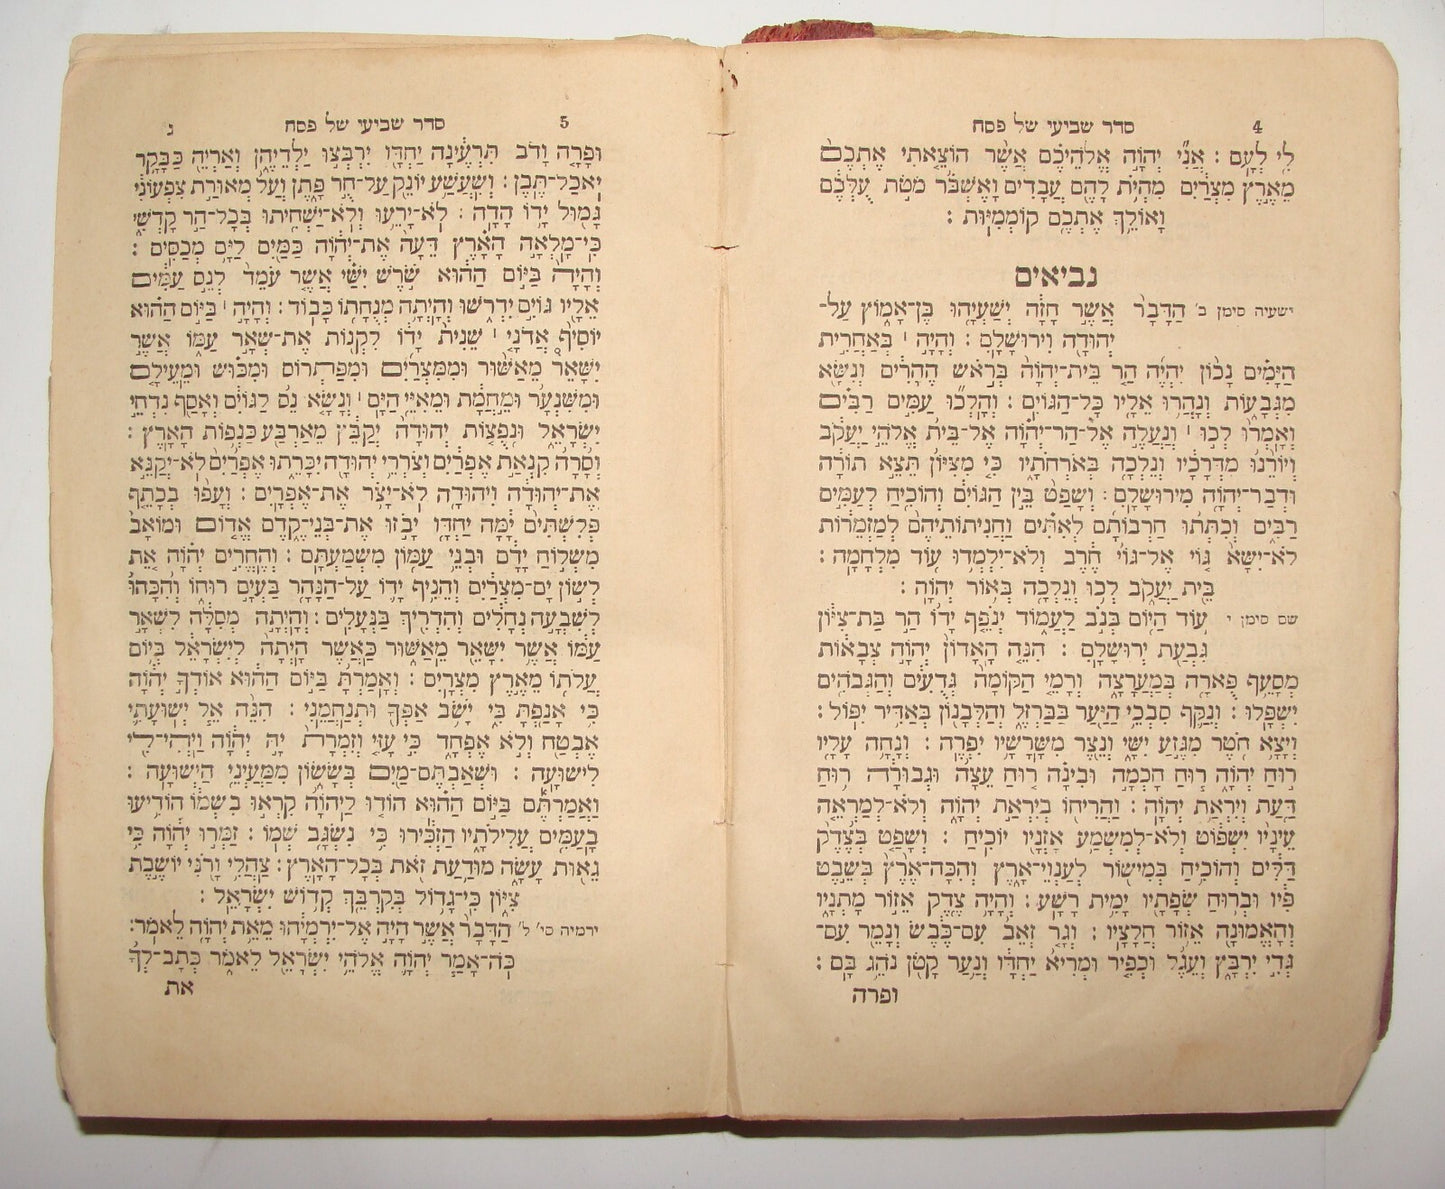 4 סדר שביעי של פסח
לִי לְעָם : אֲנִי יְהוָה אֱלֹהֵיכֶם אֲשֶׁר הוֹצֵאתִי אֶתְכֶם
מֵאֶרֶץ מִצְרַיִם מִהְיֹת לָהֶם עֲבָדִים וָאֶשְׁבֹּר מֹטֹת עֻלְּכֶם
וָאוֹלֵךְ אֶתְכֶם קוֹמְמִיּוּת :
נביאים
ישעיה סימן ב' הַדָּבָר אֲשֶׁר חָזָה יְשַׁעְיָהוּ בֶּן־אָמוֹץ עַל־
יְהוּדָה וִירוּשָׁלָםִ : וְהָיָה ׀ בְּאַחֲרִית
הַיָּמִים נָכוֹן יִהְיֶה הַר בֵּית־יְהוָה בְּרֹאשׁ הֶהָרִים וְנִשָּׂא
מִגְּבָעוֹת וְנָהֲרוּ אֵלָיו כָּל־הַגּוֹיִם : וְהָלְכוּ עַמִּים רַבִּים
וְאָמְרוּ לְכוּ ׀ וְנַעֲלֶה אֶל־הַר־יְהוָה אֶל־בֵּית אֱלֹהֵי יַעֲקֹב
וְיוֹרֵנוּ מִדְּרָכָיו וְנֵלְכָה בְּאֹרְחֹתָיו כִּי מִצִּיּוֹן תֵּצֵא תוֹרָה
וּדְבַר־יְהוָה מִירוּשָׁלָםִ : וְשָׁפַט בֵּין הַגּוֹיִם וְהוֹכִיחַ לְעַמִּים
רַבִּים וְכִתְּתוּ חַרְבוֹתָם לְאִתִּים וַחֲנִיתוֹתֵיהֶם לְמַזְמֵרוֹת
לֹא־יִשָּׂא גוֹי אֶל־גּוֹי חֶרֶב וְלֹא־יִלְמְדוּ עוֹד מִלְחָמָה :
בֵּית יַעֲקֹב לְכוּ וְנֵלְכָה בְּאוֹר יְהוָה :
שם סימן י' עוֹד הַיּוֹם בְּנֹב לַעֲמוֹד יְנֹפֵף יָדוֹ הַר בַּת־צִיּוֹן
גִּבְעַת יְרוּשָׁלָםִ : הִנֵּה הָאָדוֹן יְהוָה צְבָאוֹת
מְסָעֵף פֻּארָה בְּמַעֲרָצָה וְרָמֵי הַקּוֹמָה גְּדֻעִים וְהַגְּבֹהִים
יִשְׁפָּלוּ : וְנִקַּף סִבְכֵי הַיַּעַר בַּבַּרְזֶל וְהַלְּבָנוֹן בְּאַדִּיר יִפּוֹל :
וְיָצָא חֹטֶר מִגֵּזַע יִשָׁי וְנֵצֶר מִשָּׁרָשָׁיו יִפְרֶה : וְנָחָה עָלָיו
רוּחַ יְהוָה רוּחַ חָכְמָה וּבִינָה רוּחַ עֵצָה וּגְבוּרָה רוּחַ
דַּעַת וְיִרְאַת יְהוָה : וַהֲרִיחוֹ בְּיִרְאַת יְהוָה וְלֹא־לְמַרְאֵה
עֵינָיו יִשְׁפּוֹט וְלֹא־לְמִשְׁמַע אָזְנָיו יוֹכִיחַ : וְשָׁפַט בְּצֶדֶק
דַּלִּים וְהוֹכִיחַ בְּמִישׁוֹר לְעַנְוֵי־אָרֶץ וְהִכָּה־אֶרֶץ בְּשֵׁבֶט
פִּיו וּבְרוּחַ שְׂפָתָיו יָמִית רָשָׁע : וְהָיָה צֶדֶק אֵזוֹר מָתְנָיו
וְהָאֱמוּנָה אֵזוֹר חֲלָצָיו : וְגָר זְאֵב עִם־כֶּבֶשׂ וְנָמֵר עִם־
גְּדִי יִרְבָּץ וְעֵגֶל וּכְפִיר וּמְרִיא יַחְדָּו וְנַעַר קָטֹן נֹהֵג בָּם :
ופרה
5 סדר שביעי של פסח ג
וּפָרָה וָדֹב תִּרְעֶינָה יַחְדָּו יִרְבְּצוּ יַלְדֵיהֶן וְאַרְיֵה כַּבָּקָר
יֹאכַל־תֶּבֶן : וְשִׁעֲשַׁע יוֹנֵק עַל־חֻר פָּתֶן וְעַל מְאוּרַת צִפְעוֹנִי
גָּמוּל יָדוֹ הָדָה : לֹא־יָרֵעוּ וְלֹא־יַשְׁחִיתוּ בְּכָל־הַר קָדְשִׁי
כִּי־מָלְאָה הָאָרֶץ דֵּעָה אֶת־יְהוָה כַּמַּיִם לַיָּם מְכַסִּים :
וְהָיָה בַּיּוֹם הַהוּא שֹׁרֶשׁ יִשַׁי אֲשֶׁר עֹמֵד לְנֵס עַמִּים
אֵלָיו גּוֹיִם יִדְרֹשׁוּ וְהָיְתָה מְנֻחָתוֹ כָּבוֹד : וְהָיָה ׀ בַּיּוֹם הַהוּא
יוֹסִיף אֲדֹנָי ׀ שֵׁנִית יָדוֹ לִקְנוֹת אֶת־שְׁאָר עַמּוֹ אֲשֶׁר
יִשָּׁאֵר מֵאַשּׁוּר וּמִמִּצְרַיִם וּמִפַּתְרוֹס וּמִכּוּשׁ וּמֵעֵילָם
וּמִשִּׁנְעָר וּמֵחֲמָת וּמֵאִיֵּי הַיָּם ׀ וְנָשָׂא נֵס לַגּוֹיִם וְאָסַף נִדְחֵי
יִשְׂרָאֵל וּנְפֻצוֹת יְהוּדָה יְקַבֵּץ מֵאַרְבַּע כַּנְפוֹת הָאָרֶץ :
וְסָרָה קִנְאַת אֶפְרַיִם וְצֹרְרֵי יְהוּדָה יִכָּרֵתוּ אֶפְרַיִם לֹא־יְקַנֵּא
אֶת־יְהוּדָה וִיהוּדָה לֹא־יָצֹר אֶת־אֶפְרָיִם : וְעָפוּ בְכָתֵף
פְּלִשְׁתִּים יָמָּה יַחְדָּו יָבֹזּוּ אֶת־בְּנֵי־קֶדֶם אֱדוֹם וּמוֹאָב
מִשְׁלוֹחַ יָדָם וּבְנֵי עַמּוֹן מִשְׁמַעְתָּם : וְהֶחֱרִים יְהוָה אֵת
לְשׁוֹן יָם־מִצְרַיִם וְהֵנִיף יָדוֹ עַל־הַנָּהָר בַּעְיָם רוּחוֹ וְהִכָּהוּ
לְשִׁבְעָה נְחָלִים וְהִדְרִיךְ בַּנְּעָלִים : וְהָיְתָה מְסִלָּה לִשְׁאָר
עַמּוֹ אֲשֶׁר יִשָּׁאֵר מֵאַשּׁוּר כַּאֲשֶׁר הָיְתָה לְיִשְׂרָאֵל בְּיוֹם
עֲלֹתוֹ מֵאֶרֶץ מִצְרָיִם : וְאָמַרְתָּ בַּיּוֹם הַהוּא אוֹדְךָ יְהוָה
כִּי אָנַפְתָּ בִּי יָשֹׁב אַפְּךָ וּתְנַחֲמֵנִי : הִנֵּה אֵל יְשׁוּעָתִי
אֶבְטַח וְלֹא אֶפְחָד כִּי עָזִּי וְזִמְרָת יָהּ יְהוָה וַיְהִי־לִי
לִישׁוּעָה : וּשְׁאַבְתֶּם־מַיִם בְּשָׂשׂוֹן מִמַּעַיְנֵי הַיְשׁוּעָה :
וַאֲמַרְתֶּם בַּיּוֹם הַהוּא הוֹדוּ לַיהוָה קִרְאוּ בִשְׁמוֹ הוֹדִיעוּ
בָעַמִּים עֲלִילֹתָיו הַזְכִּירוּ כִּי נִשְׂגָּב שְׁמוֹ : זַמְּרוּ יְהוָה כִּי
גֵאוּת עָשָׂה מוּדַעַת זֹאת בְּכָל־הָאָרֶץ : צַהֲלִי וָרֹנִּי יוֹשֶׁבֶת
צִיּוֹן כִּי־גָדוֹל בְּקִרְבֵּךְ קְדוֹשׁ יִשְׂרָאֵל :
ירמיה סי' ל' הַדָּבָר אֲשֶׁר הָיָה אֶל־יִרְמְיָהוּ מֵאֵת יְהוָה לֵאמֹר :
כֹּה־אָמַר יְהוָה אֱלֹהֵי יִשְׂרָאֵל לֵאמֹר כְּתָב־לְךָ
את